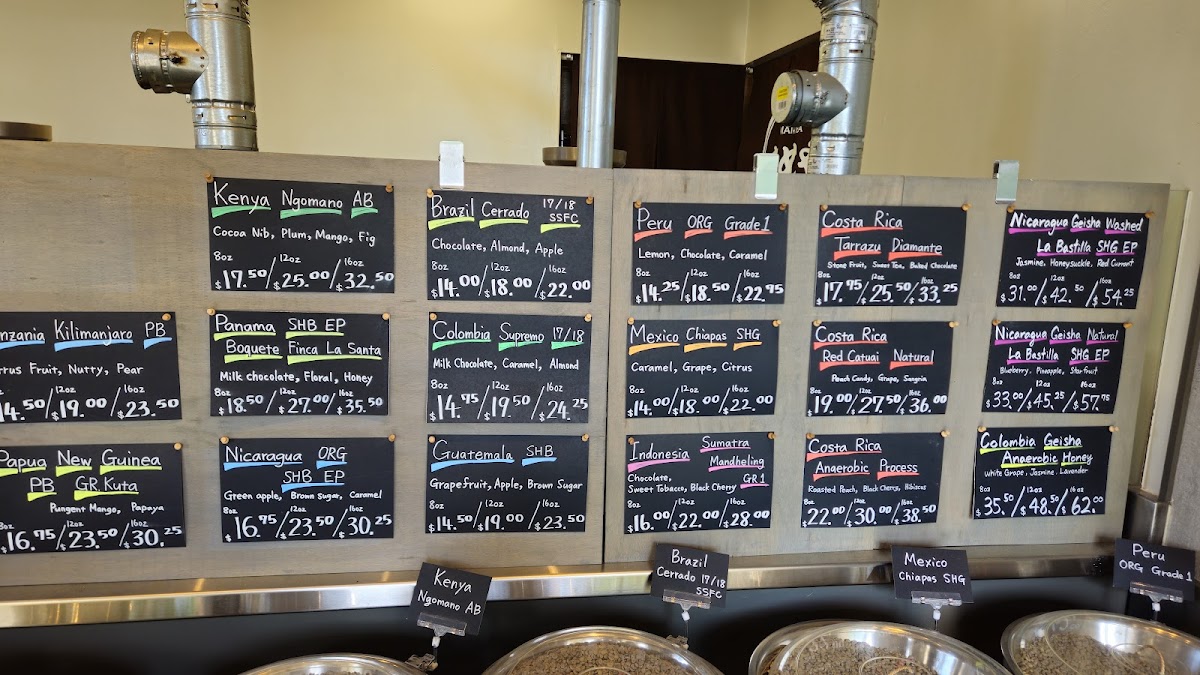 Kenya Ngomano AB
Cocoa Nib, Plum, Mango, Fig
8oz 12oz 16oz
$17.50/$25.00/$32.50
Brazil Cerrado 17/18
SSFC
Chocolate, Almond, Apple
8oz 12oz 16oz
$14.00/$18.00/$22.00
Peru ORG Grade 1
Lemon, Chocolate, Caramel
8oz 12oz 16oz
$14.25/$18.50/$22.95
Costa Rica
Tarrazu Diamante
Stone Fruit, Sweet Tea, Baked Chocolate
8oz 12oz 16oz
$17.95/$25.50/$33.25
Nicaragua Geisha Washed
La Bastilla SHG EP
Jasmine, Honeysuckle, Red Currant
8oz 12oz 16oz
$31.00/$42.50/$54.25
nzania Kilimanjaro PB
trus Fruit, Nutty, Pear
12oz 16oz
4.50/$19.00/$23.50
Panama SHB EP
Boquete Finca La Santa
Milk chocolate, Floral, Honey
8oz 12oz 16oz
$18.50/$27.00/$35.50
Colombia Supremo 17/18
Milk Chocolate, Caramel, Almond
8oz 12oz 16oz
$14.95/$19.50/$24.25
Mexico Chiapas SHG
Caramel, Grape, Citrus
8oz 12oz 16oz
$14.00/$18.00/$22.00
Costa Rica
Red Catuai Natural
Peach Candy, Grape, Sangria
8oz 12oz 16oz
$19.00/$27.50/$36.00
Nicaragua Geisha Natural
La Bastilla SHG EP
Blueberry, Pineapple, Starfruit
8oz 12oz 16oz
$33.00/$45.25/$57.75
Papua New Guinea
PB GR.Kuta
Pungent Mango, Papaya
8oz 12oz 16oz
$16.75/$23.50/$30.25
Nicaragua ORG
SHB EP
Green apple, Brown Sugar, Caramel
8oz 12oz 16oz
$16.75/$23.50/$30.25
Guatemala SHB
Grapefruit, Apple, Brown Sugar
8oz 12oz 16oz
$14.50/$19.00/$23.50
Indonesia Sumatra
Mandheling
Chocolate,
Sweet Tobacco, Black Cherry GR 1
8oz 12oz 16oz
$16.00/$22.00/$28.00
Costa Rica
Anaerobic Process
Roasted Peach, Black Cherry, Hibiscus
8oz 12oz 16oz
$22.00/$30.00/$38.50
Colombia Geisha
Anaerobic Honey
White Grape, Jasmine, Lavander
8oz 12oz 16oz
$35.50/$48.50/$62.00
Kenya
Ngomano AB
Brazil
Cerrado 17/18
SSFC
Mexico
Chiapas SHG
Peru
ORG Grade 1